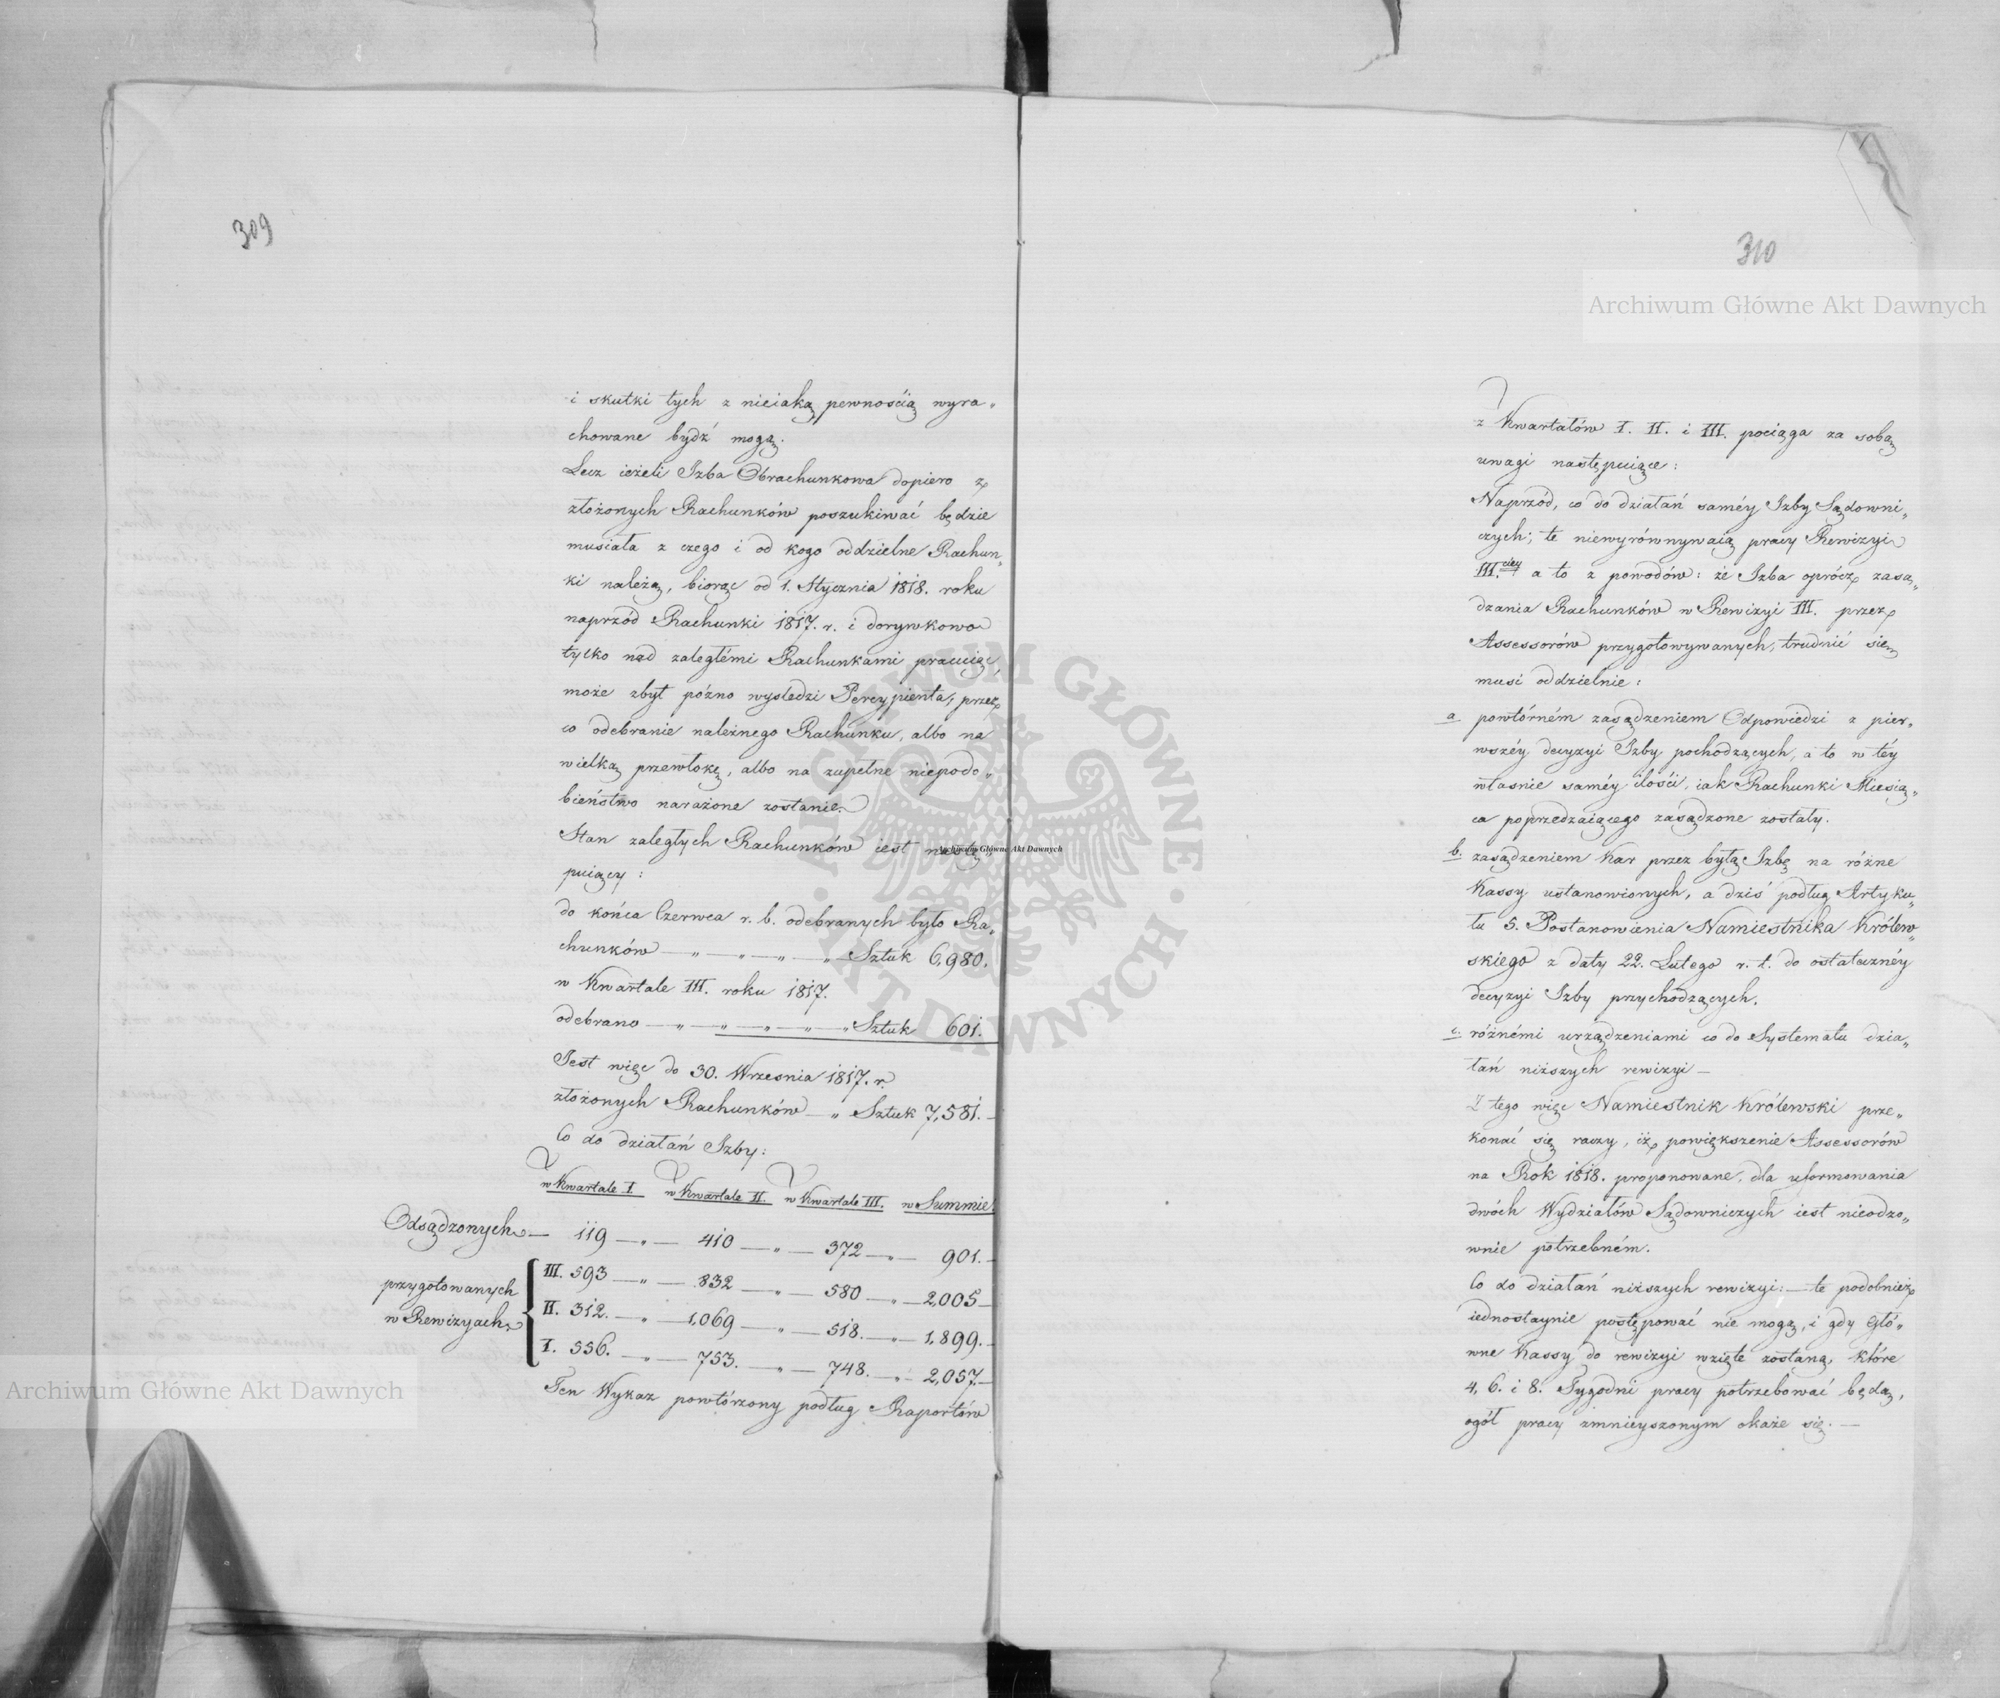 309
i skutki tych z nieiaką pewnością wyra„
chowane bydź mogą.
Lecz ieżeli Izba Obrachunkowa dopiero z
złożonych Rachunków poszukiwać będzie
musiała z czego i od kogo oddzielne Rachun„
ki należą, biorąc od 1. Stycznia 1818. roku
naprzód Rachunki 1817. r. i dorywkowo
tylko nad zaległémi Rachunkami pracuiąc,
może zbyt pózno wysledzi Percypienta, przez
co odebranie należnego Rachunku, albo na
wielką przewłokę, albo na zupełne niepodo„
bieństwo narażone zostanie.
Stan zaległych Rachunków iest nastę„
puiący:
do końca Czerwca r. b. odebranych było Ra„
chunków — „ — „ — „ — „ — Sztuk 6,980.
w Kwartale III. roku 1817.
odebrano — „ — „ — „ — „ — „ Sztuk 601.
Jest więc do 30. Wrzesnia 1817. r.
złożonych Rachunków — „ Sztuk 7,581. —
Co do działań Izby:
w Kwartale I. w Kwartale II. w Kwartale III. w Summie
Odsądzonych — 119 — „ — 410 — „ — 372 — „ — 901. —
przygotowanych
w Rewizyach
III. 593 — „ — 832 — „ — 580 — „ — 2,005 —
II. 312. — „ — 1,069 — „ — 518. — „ — 1,899. —
I. 556. — „ — 753. — „ — 748. — „ — 2,057. —
Ten Wykaz powtórzony podług Raportów
310
z Kwartałów I. II. i III. pociąga za sobą
uwagi następuiące:
Naprzód, co do działań saméy Izby Sądowni„
czych; te niewyrównywaią pracy Rewizyi
III.ciey a to z powodów: że Izba oprócz zasą„
dzania Rachunków w Rewizyi III. przez
Assessorów przygotowywanych, trudnić się
musi oddzielnie:
a powtórném zasądzeniem Odpowiedzi z pier„
wszéy decyzyi Izby pochodzących, a to w téy
własnie saméy ilości, iak Rachunki Miesią„
ca poprzedzaiącego zasądzone zostały.
b. zasądzeniem Kar przez byłą Izbę na różne
Kassy ustanowionych, a dziś podług Artyku„
łu 5. Postanowienia Namiestnika Królew„
skiego z daty 22. Lutego r. t. do ostateczney
decyzyi Izby przychodzących.
c. różnémi urządzeniami co do Systematu dzia„
łań niższych rewizyi —
Z tego więc Namiestnik Królewski prze„
konać się raczy, iż powiększenie Assessorów
na Rok 1818. proponowane, dla uformowania
dwóch Wydziałów Sądowniczych iest nieodzo„
wnie potrzebném.
Co do działań niższych rewizyi: — te podobnież
iednostaynie postępować nie mogą, i gdy Głó„
wne Kassy do rewizyi wzięte zostaną, które
4, 6. i 8. Tygodni pracy potrzebować będą,
ogół pracy zmnieyszonym okaże się. —
Archiwum Główne Akt Dawnych
Archiwum Główne Akt Dawnych
Archiwum Główne Akt Dawnych
ARCHIWUM GŁÓWNE · AKT DAWNYCH ·